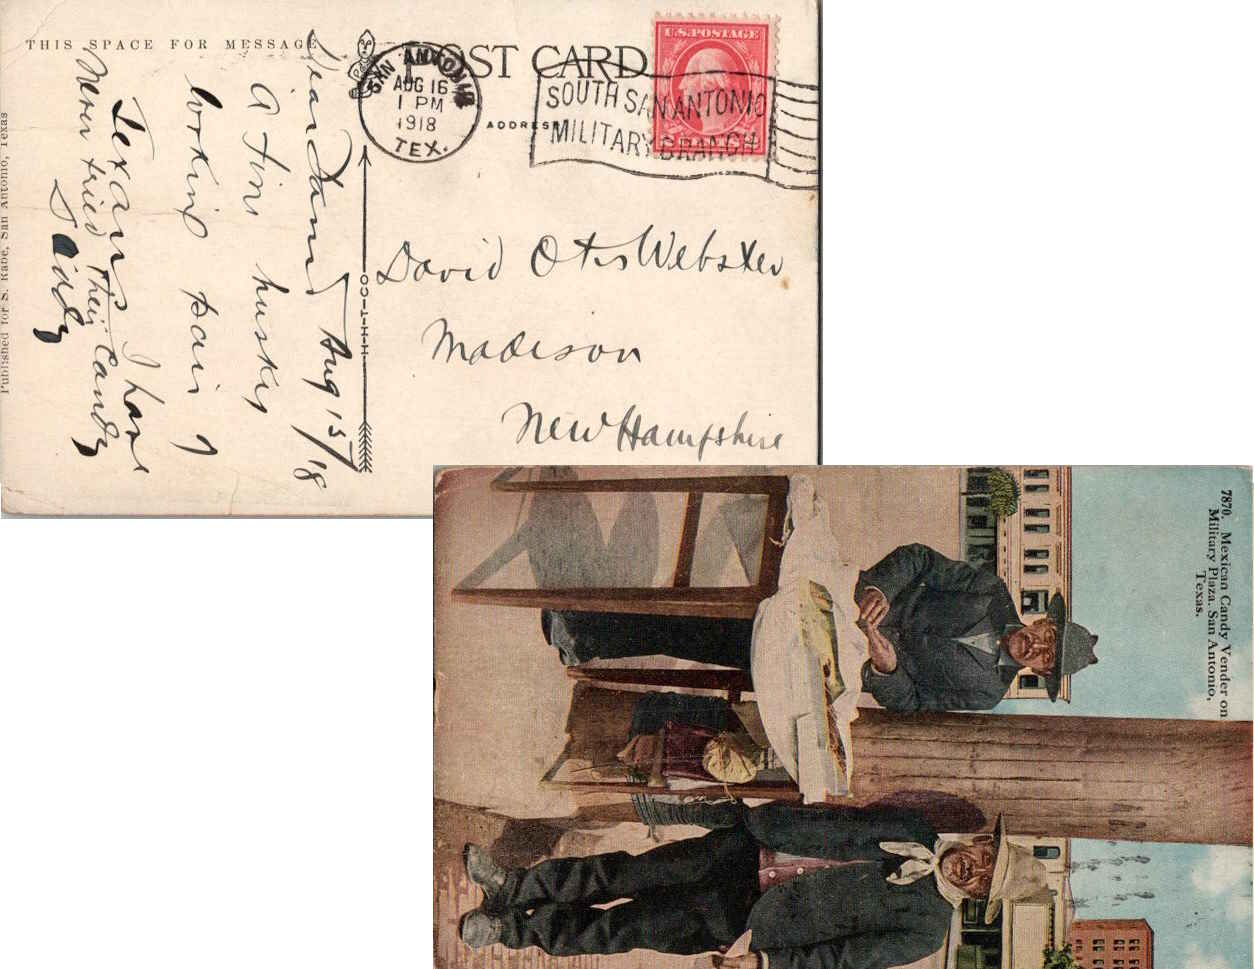 THIS SPACE FOR MESSAGE
POST CARD
ADDRESS
U.S. POSTAGE
SAN ANTONIO
AUG 16
1 PM
1918
TEX.
SOUTH SAN ANTONIO
MILITARY BRANCH
David Otis Webster
Madison
New Hampshire
Aug 15/18
A fine husky
looking pair of
Texans I have
never tried their candy
Daddy
C-T-HIT-CO
Published for S. Rabe, San Antonio, Texas
7870. Mexican Candy Vender on
Military Plaza, San Antonio,
Texas.